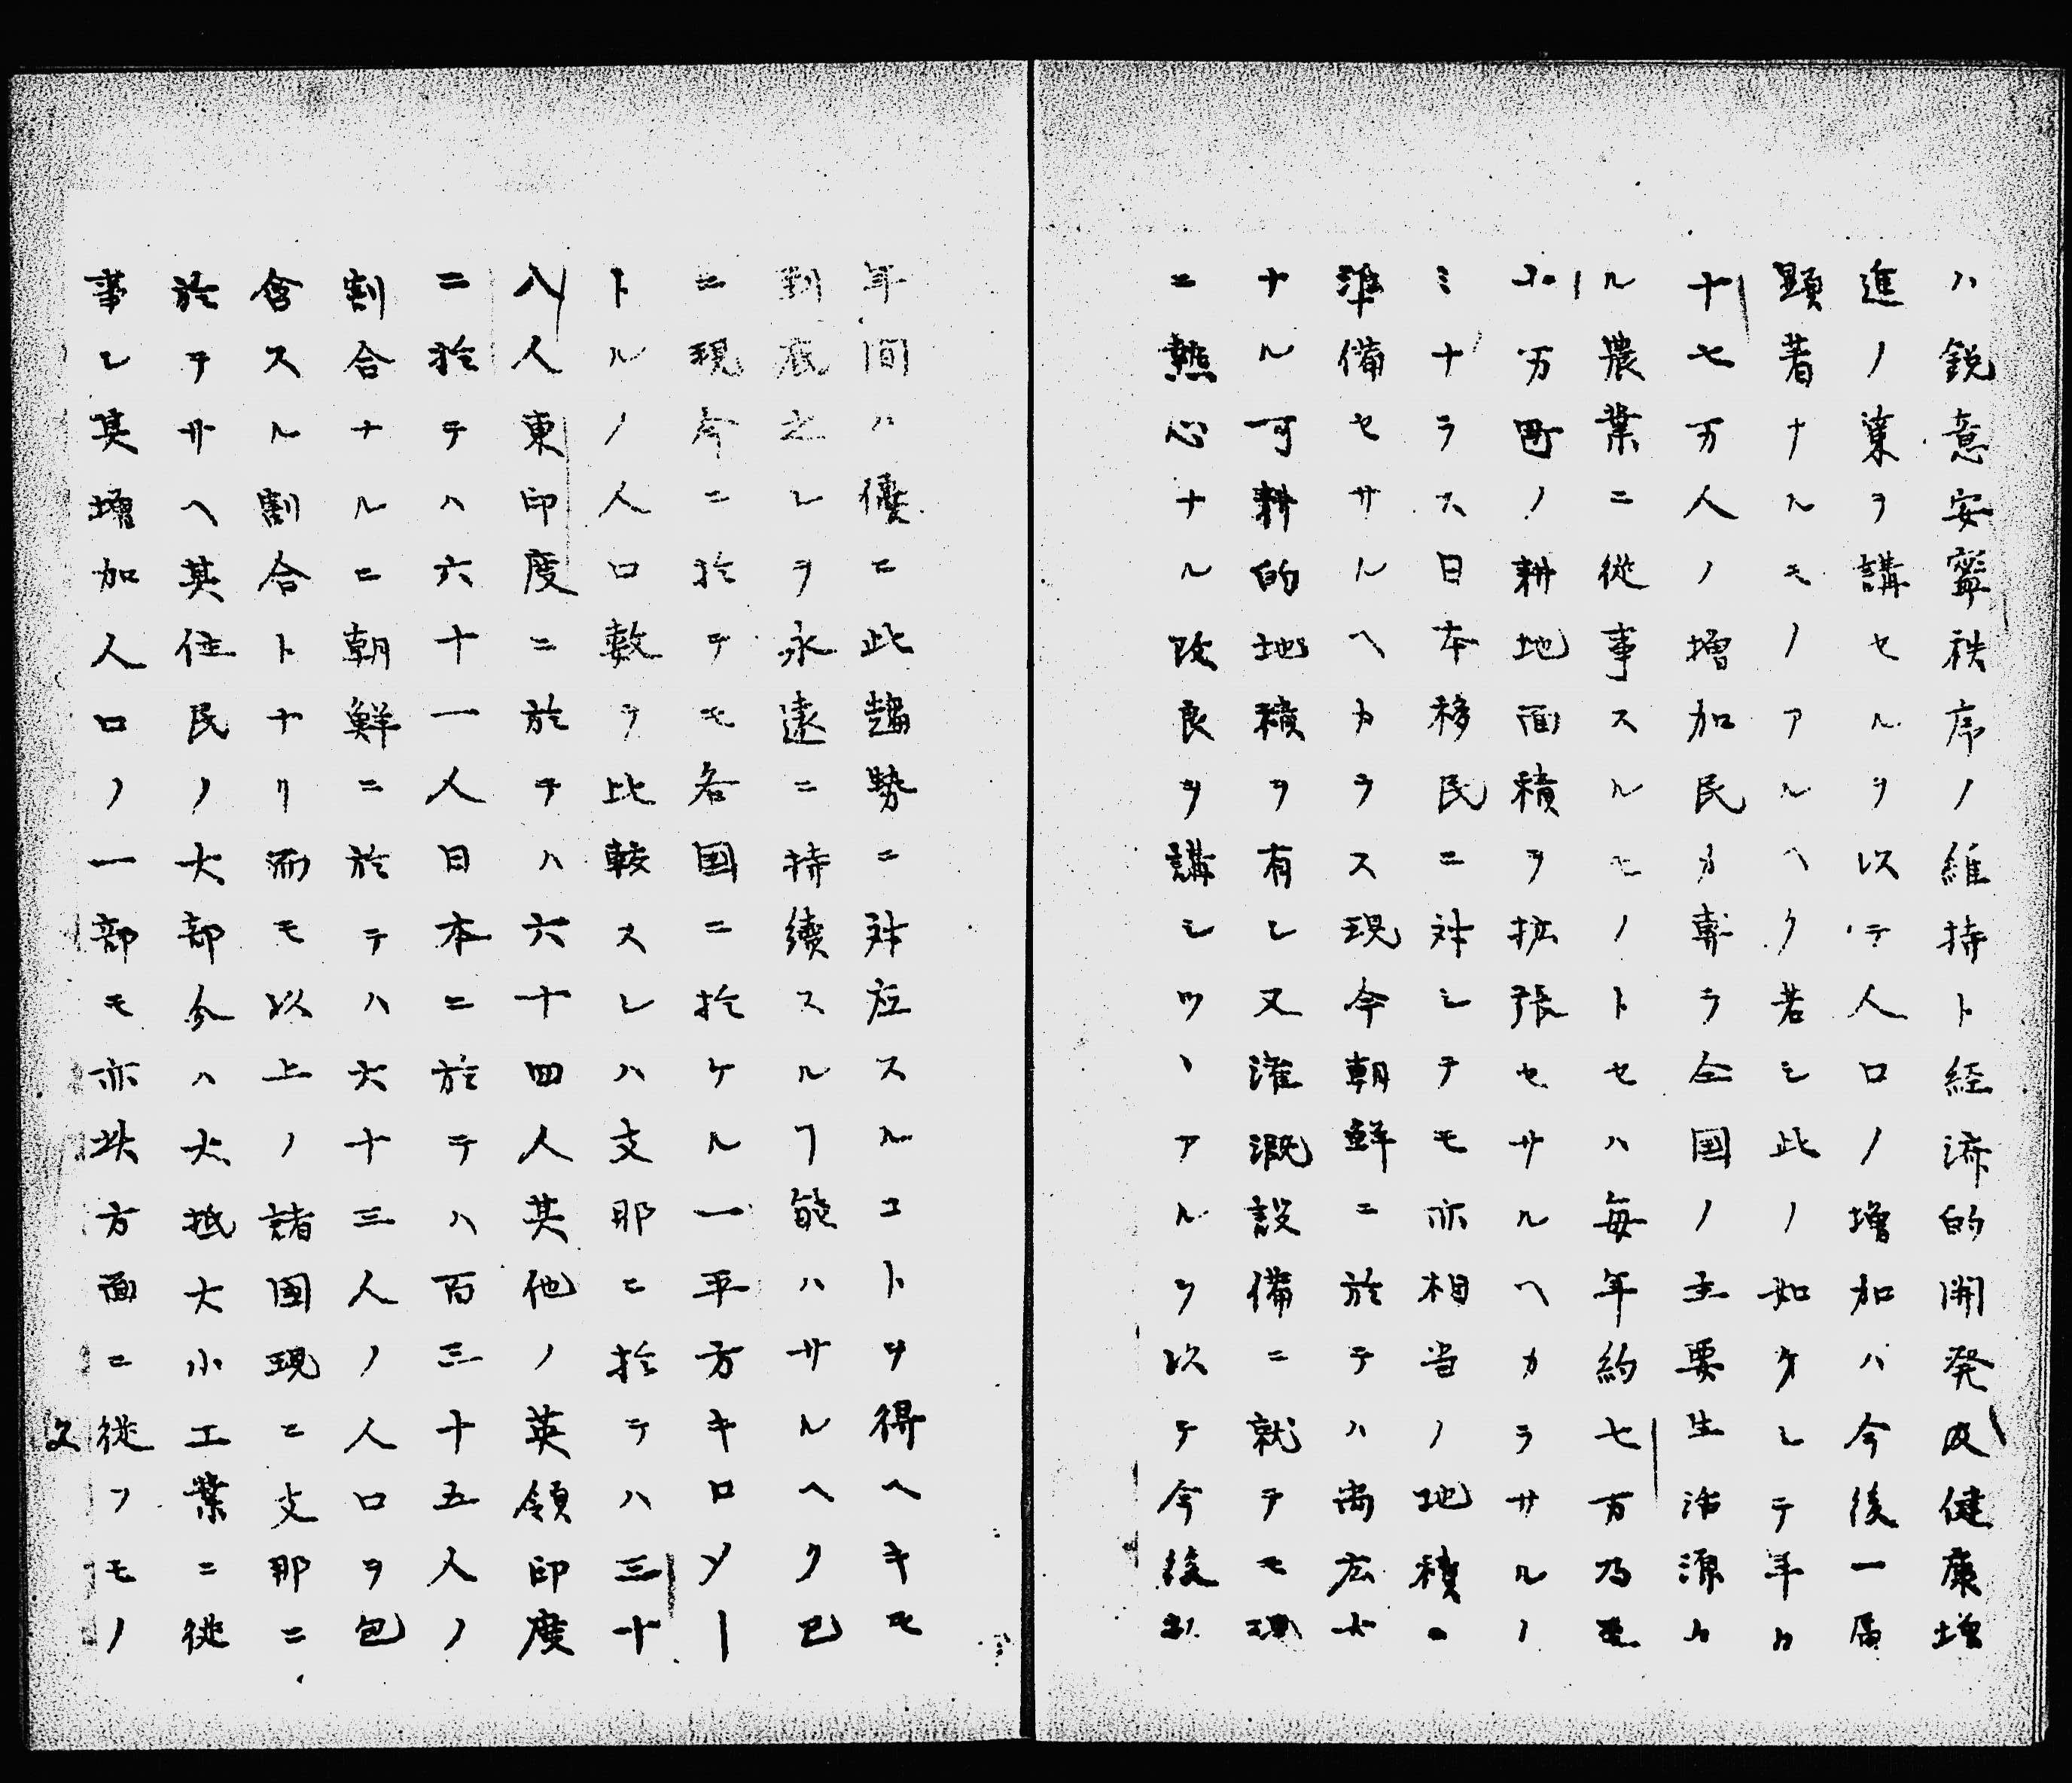 ハ鋭意安寧秩序ノ維持ト経済的開発及健康増
進ノ策ヲ講セルヲ以テ人口ノ増加ハ今後一層
顕著ナルモノアルヘク若シ此ノ如クシテ年々
十七万人ノ増加民カ専ラ全国ノ主要生活源タ
ル農業ニ従事スルモノトセハ毎年約七万乃至
万町ノ耕地面積ヲ拡張セサルヘカラサルノ
ミナラス日本移民ニ対シテモ亦相当ノ地積
準備セサルヘカラス現今朝鮮ニ於テハ尚広大
ナル可耕的地積ヲ有シ又潅漑設備ニ就テモ現
ニ熱心ナル改良ヲ講シツヽアルヲ以テ今後
年間ハ優ニ此趨勢ニ対応スルコトヲ得ヘキモ
到底之レヲ永遠ニ持続スルヿ能ハサルヘク已
ニ現今ニ於テモ各国ニ於ケル一平方キロメー
トルノ人口数ヲ比較スレハ支那ニ於テハ三十
八人東印度ニ於テハ六十四人其他ノ英領印度
ニ於テハ六十一人日本ニ於テハ百三十五人ノ
割合ナルニ朝鮮ニ於テハ六十三人ノ人口ヲ包
含スル割合トナリ而モ以上ノ諸国現ニ支那ニ
於テサヘ其住民ノ大部分ハ大抵大小工業ニ従
事シ其増加人口ノ一部モ亦此方面ニ従フモノ